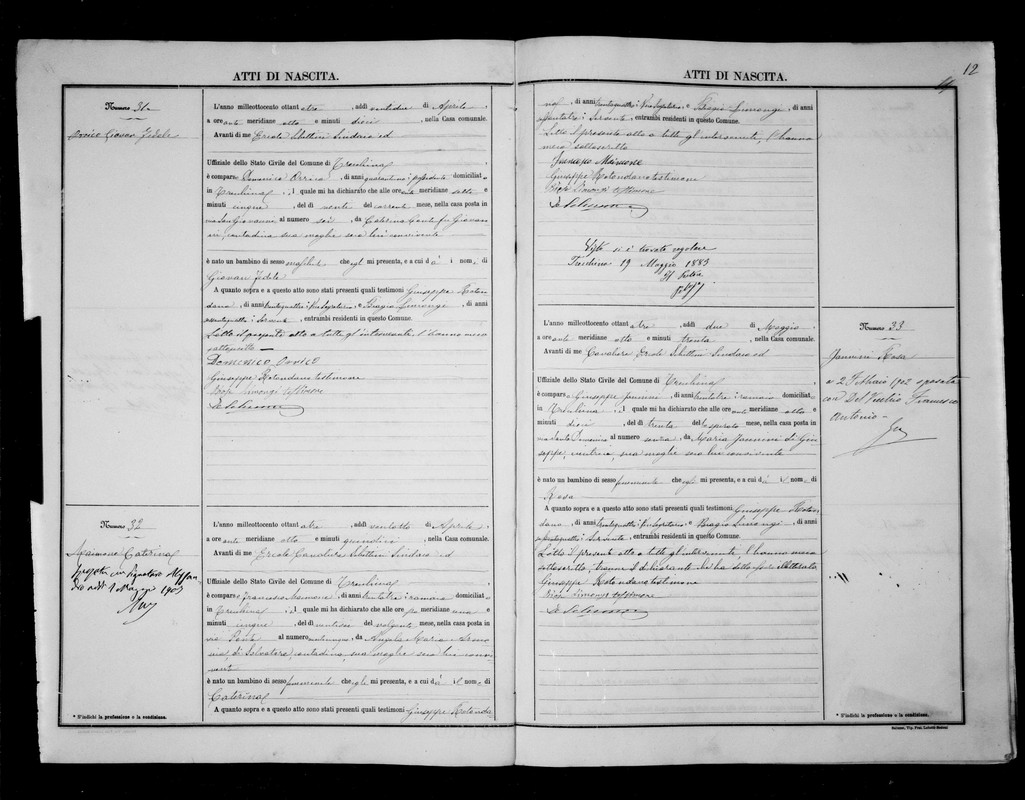 ATTI DI NASCITA.
Numero 31
Orrico Giovan Fedele
L'anno milleottocento ottantatre, addì ventidue di Aprile,
a ore anti meridiane otto e minuti dieci, nella Casa comunale.
Avanti di me Ercole Schettini Sindaco ed
Uffiziale dello Stato Civile del Comune di Trecchina,
è comparso Domenico Orrico, di anni quarantuno, domiciliato
in Trecchina, il quale mi ha dichiarato che alle ore meridiane sette e
minuti cinque, del dì venti del corrente mese, nella casa posta in
via San Giovanni al numero sei, da Caterina Conte fu Giovan
ni, contadina sua moglie seco lui convivente
è nato un bambino di sesso maschile che egli mi presenta, e a cui dà il nome di
Giovan Fedele
A quanto sopra e a questo atto sono stati presenti quali testimoni Giuseppe Roton
dano, di anni trentaquattro, e Biagio Limongi, di anni
Serviente, entrambi residenti in questo Comune.
Letto il presente atto a tutti gl'intervenuti, l'hanno meco
sottoscritto
Domenico Orrico
Giuseppe Rotondano testimone
Biagio Limongi testimone
E Schettini
Numero 32
Maimone Caterina
sposata con Signatore
addì 1 Maggio 1905
L'anno milleottocento ottantatre, addì ventotto di Aprile,
a ore anti meridiane otto e minuti quindici, nella Casa comunale.
Avanti di me Ercole Cavaliere Schettini Sindaco ed
Uffiziale dello Stato Civile del Comune di Trecchina,
è comparso Francesco Maimone, di anni trentatre, ramaio domiciliato
in Trecchina, il quale mi ha dichiarato che alle ore meridiane una e
minuti cinque, del dì ventisei del volgente mese, nella casa posta in
via Ponte al numero, da Angela Maria
di Salvatore, contadina, sua moglie seco lui convi
vente
è nato un bambino di sesso femminile che egli mi presenta, e a cui dà il nome di
Caterina
A quanto sopra e a questo atto sono stati presenti quali testimoni Giuseppe Rotonda
* S'indichi la professione o la condizione.
ATTI DI NASCITA.
12
no, di anni trentaquattro, e Biagio Limongi, di anni
Serviente, entrambi residenti in questo Comune.
Letto il presente atto a tutti gl'intervenuti, l'hanno
meco sottoscritto
Francesco Maimone
Giuseppe Rotondano testimone
Biagio Limongi testimone
E Schettini
Visto si è trovato regolare
Trecchina 19 Maggio 1883
Il Pretore
L'anno milleottocento ottantatre, addì due di Maggio,
a ore anti meridiane otto e minuti trenta, nella Casa comunale.
Avanti di me Cavaliere Ercole Schettini Sindaco ed
Uffiziale dello Stato Civile del Comune di Trecchina,
è comparso Giuseppe Iannini, di anni trentotto, ramaio domiciliato
in Trecchina, il quale mi ha dichiarato che alle ore anti meridiane otto e
minuti dieci, del dì trenta dello spirato mese, nella casa posta in
via Santo Domenico al numero senza, da Maria Iannini di Giu
seppe, sua moglie seco lui convivente
è nato un bambino di sesso femminile che egli mi presenta, e a cui dà il nome di
Rosa
A quanto sopra e a questo atto sono stati presenti quali testimoni Giuseppe Roton
dano, di anni trentaquattro, e Biagio Limongi, di anni
Serviente, entrambi residenti in questo Comune.
Letto il presente atto a tutti gl'intervenuti, l'hanno meco
sottoscritto, tranne il dichiarante che ha detto illetterato
Giuseppe Rotondano testimone
Biagio Limongi testimone
E Schettini
Numero 33
Iannini Rosa
a 2 Febbraio 1902 sposata
con Del Vecchio Francesco
Antonio
* S'indichi la professione o la condizione.